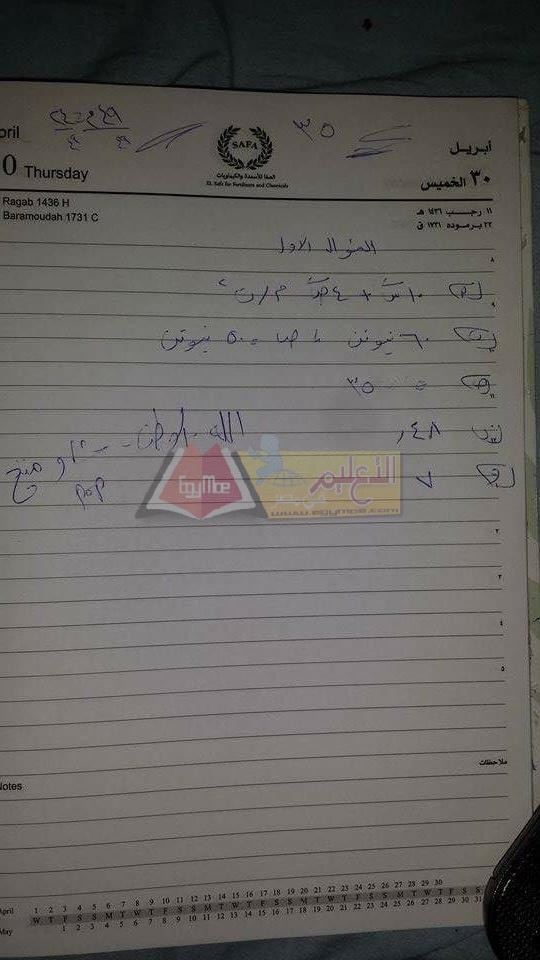 ٣٥
April
أبريل
SAFA
الصفا للأسمدة والكيماويات
EL Safa for Fertilizers and Chemicals
30 Thursday
٣٠ الخميس
Ragab 1436 H
١١ رجب ١٤٣٦ هـ
Baramoudah 1731 C
٢٢ برموده ١٧٣١ ق
السؤال الاول
٨
١٠ س + ٤ ص م/ث٢
٩
٦٠ نيوتن ، ص = ٥٠ نيوتن
= ٣٥
٤٨,
٧
pop
EgyMoe
التعليم
www.egymoe.com
٢
٣
٤
٥
ملاحظات
Notes
April 1 2 3 4 5 6 7 8 9 10 11 12 13 14 15 16 17 18 19 20 21 22 23 24 25 26 27 28 29 30
W T F S S M T W T F S S M T W T F S S M T W T F S S M T W T F S S
May 1 2 3 4 5 6 7 8 9 10 11 12 13 14 15 16 17 18 19 20 21 22 23 24 25 26 27 28 29 30 31